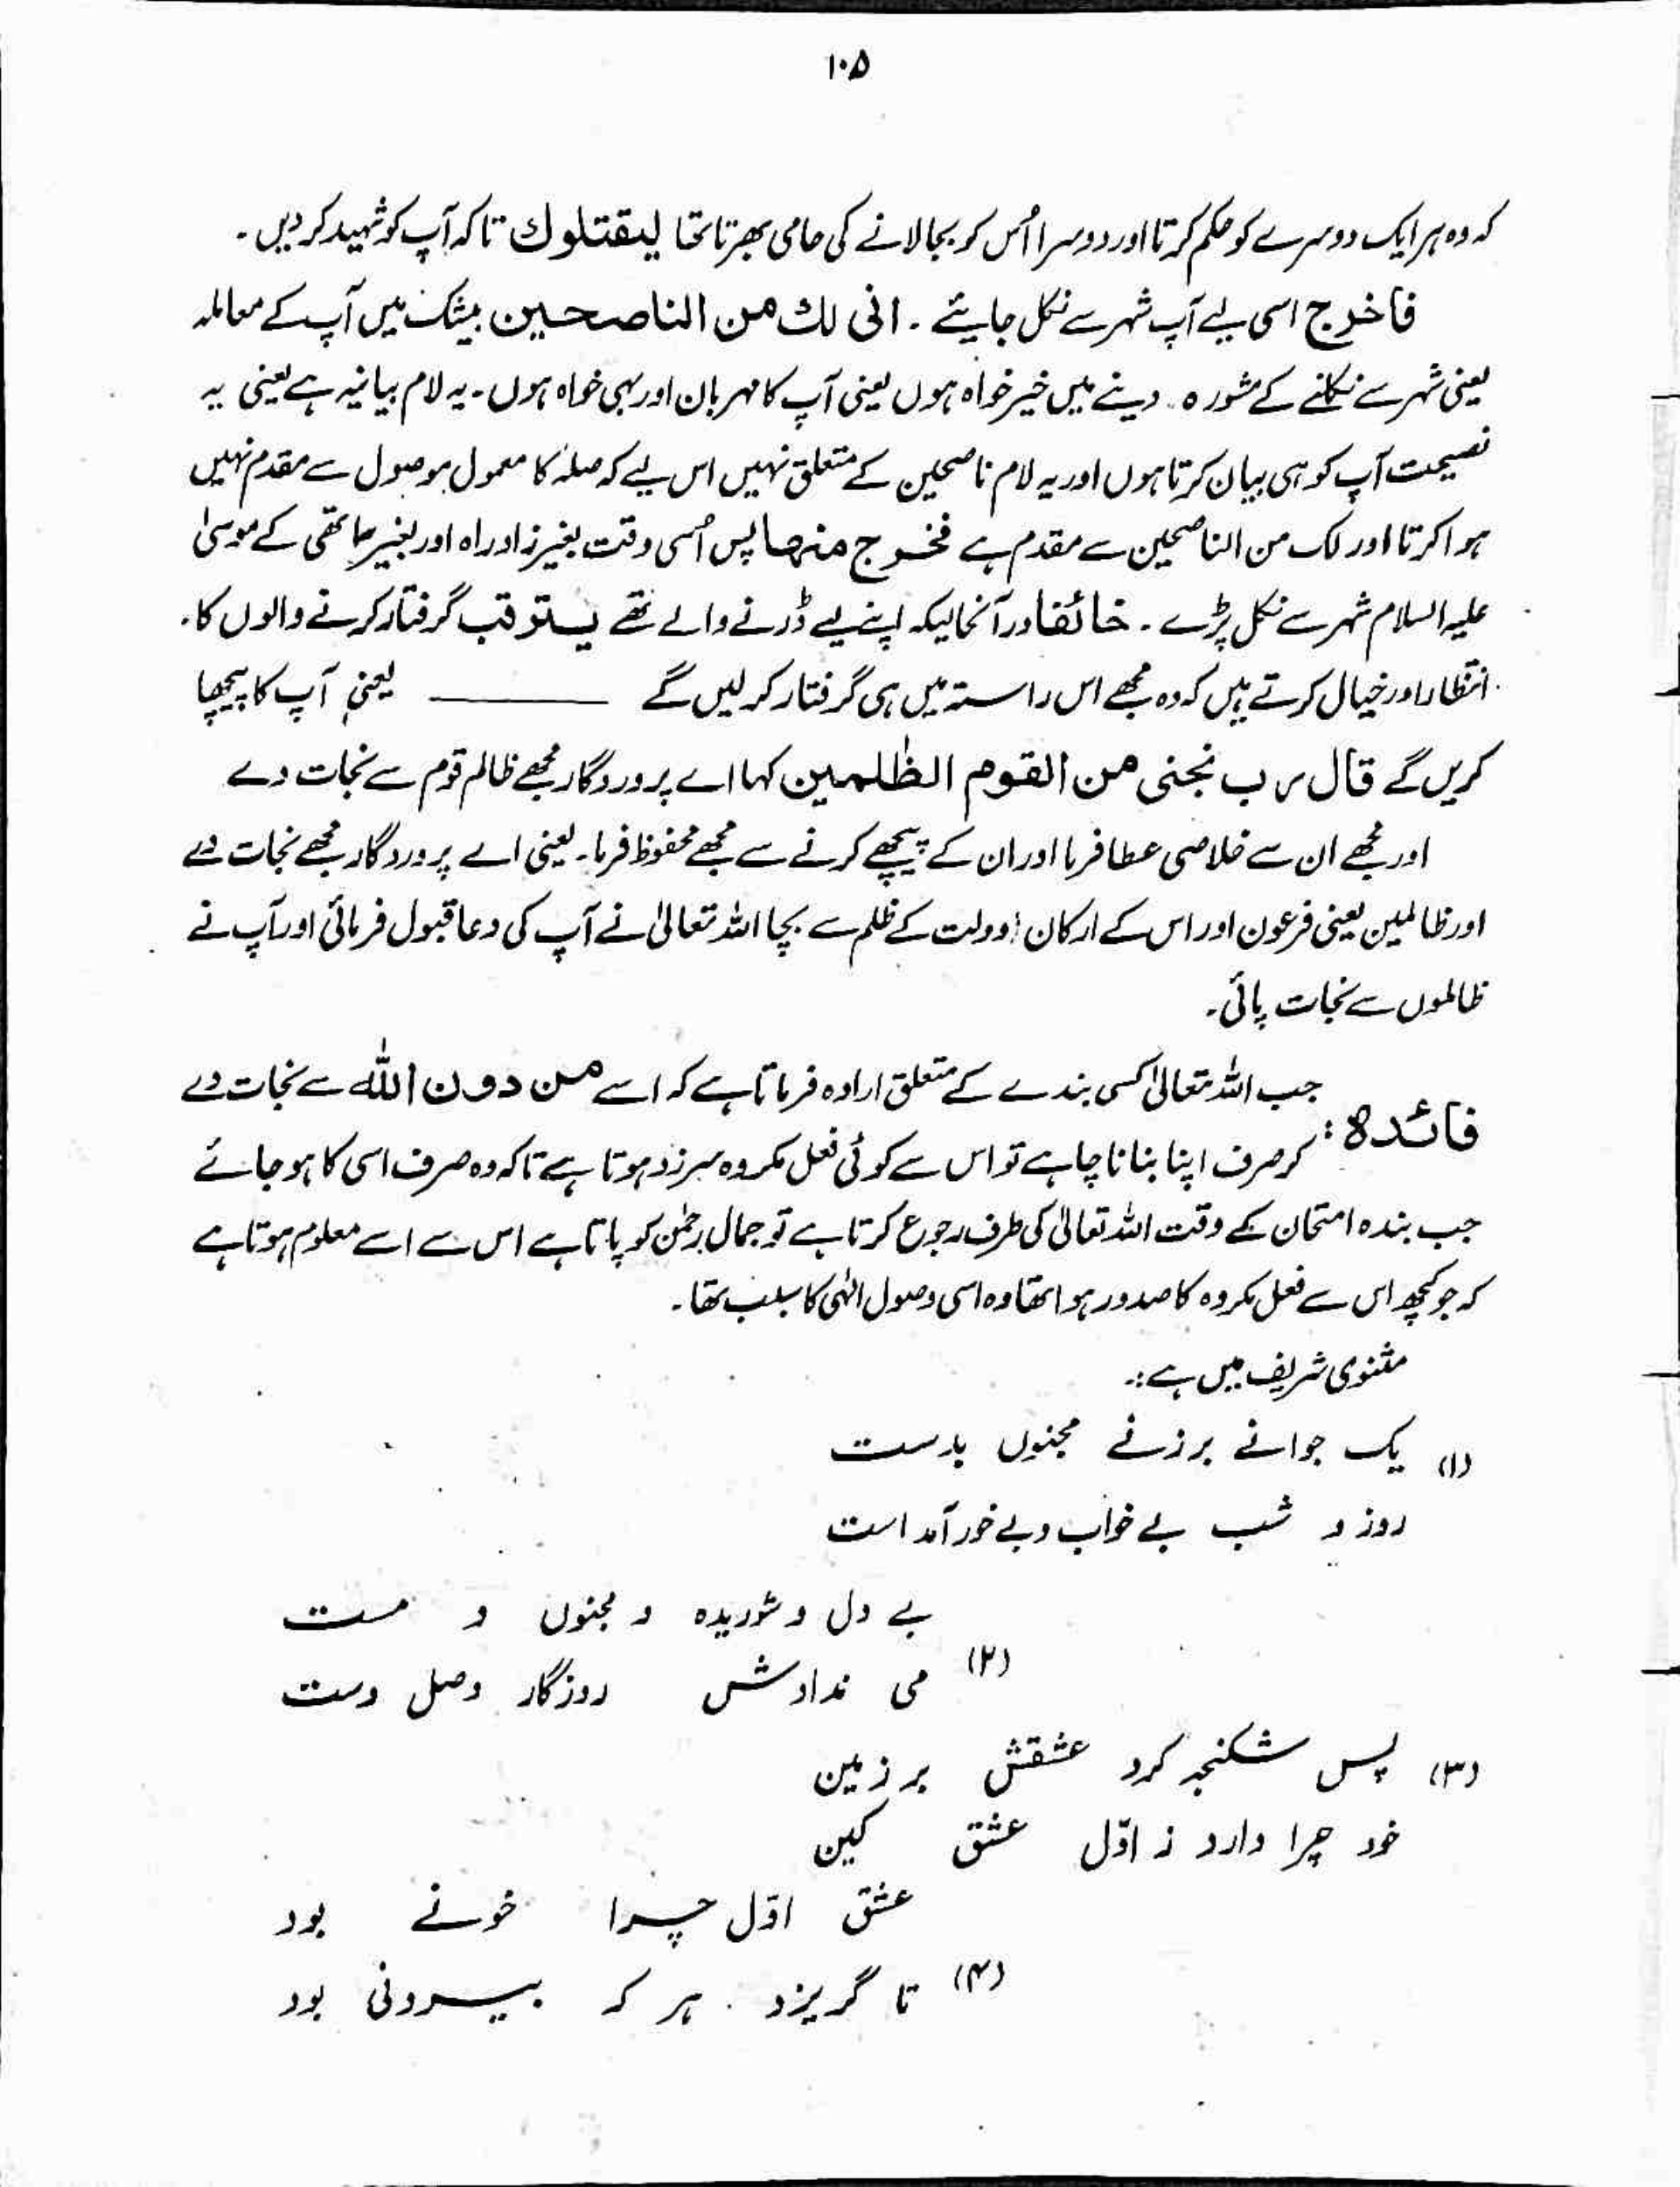 ۱۰۵
کہ وہ ہر ایک دوسرے کو حکم کرتا اور دوسرا اُس کو بجا لانے کی حامی بھرتا تھا لیقتلوك تاکہ آپ کو شہید کر دیں۔
فاخرج اسی لیے آپ شہر سے نکل جایئے ۔ انی لك من الناصحین بیشک میں آپ کے معاملہ
یعنی شہر سے نکلنے کے مشورہ دینے میں خیر خواہ ہوں یعنی آپ کا مہربان اور بہی خواہ ہوں ۔ یہ لام بیانیہ ہے یعنی یہ
نصیحت آپ کو ہی بیان کرتا ہوں اور یہ لام ناصحین کے متعلق نہیں اس لیے کہ صلہ کا معمول موصول سے مقدم نہیں
ہوا کرتا اور لک من الناصحین سے مقدم ہے فخرج منہا پس اُسی وقت بغیر زاد راہ اور بغیر ساتھی کے موسیٰ
علیہ السلام شہر سے نکل پڑے ۔ خائفا درآنحالیکہ اپنے لیے ڈرنے والے تھے یستوقب گرفتار کرنے والوں کا
انتظار اور خیال کرتے ہیں کہ وہ مجھے اس راستہ میں ہی گرفتار کر لیں گے ــــــــ یعنی آپ کا پیچھا
کریں گے قال رب نجنی من القوم الظٰلمین کہا اے پروردگار مجھے ظالم قوم سے نجات دے
اور مجھے ان سے خلاصی عطا فرما اور ان کے پیچھے کرنے سے مجھے محفوظ فرما۔ یعنی اے پروردگار مجھے نجات دے
اور ظالمین یعنی فرعون اور اس کے ارکان دولت کے ظلم سے بچا اللہ تعالیٰ نے آپ کی دعا قبول فرمائی اور آپ نے
ظالموں سے نجات پائی۔
فائدہ : جب اللہ تعالیٰ کسی بندے کے متعلق ارادہ فرماتا ہے کہ اسے من دون اللہ سے نجات دے
کر صرف اپنا بنانا چاہے تو اس سے کوئی فعل مکروہ سرزد ہوتا ہے تاکہ وہ صرف اسی کا ہو جائے
جب بندہ امتحان کے وقت اللہ تعالیٰ کی طرف رجوع کرتا ہے تو جمال رحمٰن کو پاتا ہے اس سے اسے معلوم ہوتا ہے
کہ جو کچھ اس سے فعل مکروہ کا صدور ہوا تھا وہ اسی وصول الٰہی کا سبب تھا ۔
مثنوی شریف میں ہے :۔
(۱) یک جوانے بر زنے مجنوں بدست
روز و شب بے خواب و بے خور آمد است
بے دل و شوریدہ و مجنوں و مست
(۲) می ندادش روزگار وصل دست
(۳) پس شکنجہ کرد عشقش بر زمین
خود چرا دارد ز اوّل عشق کین
عشق اوّل چرا خونے بود
(۴) تا گریزد ہر کہ بیرونی بود